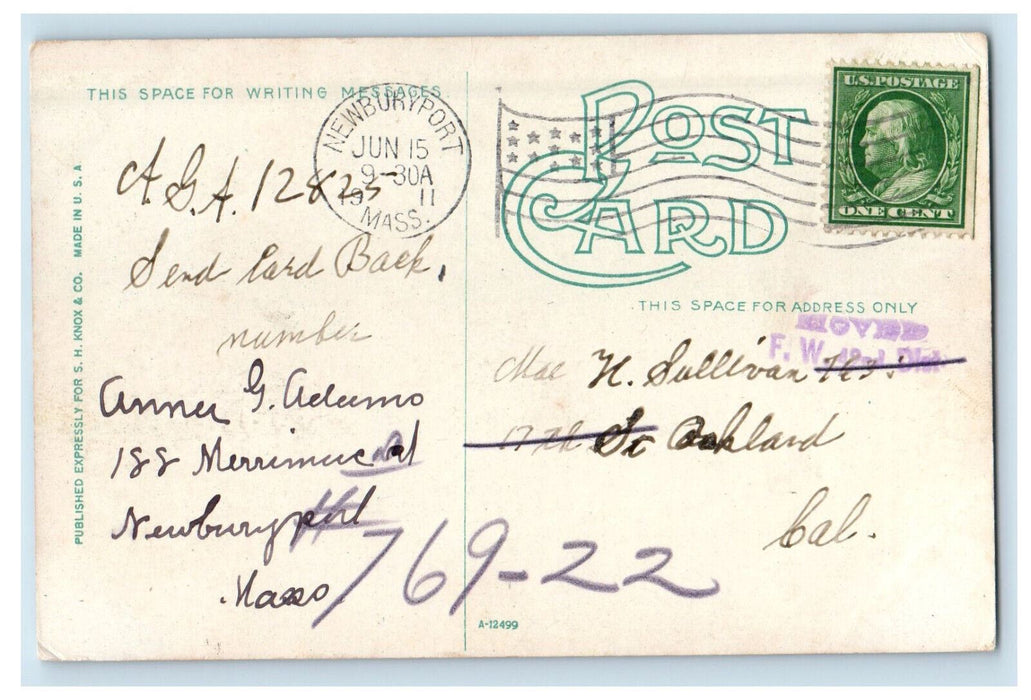 THIS SPACE FOR WRITING MESSAGES
NEWBURYPORT
JUN 15
9-30A
19 11
MASS.
A.G.A. 12825
Send Card Back,
number
Anna G. Adams
188 Merrimac St
Newburyport
Mass
PUBLISHED EXPRESSLY FOR S. H. KNOX & CO. MADE IN U. S. A
POST CARD
U.S. POSTAGE
ONE CENT
THIS SPACE FOR ADDRESS ONLY
MOVED
F. W. Dist.
Mae H. Sullivan 793
17th St Oakland
Cal.
#769-22
A-12499